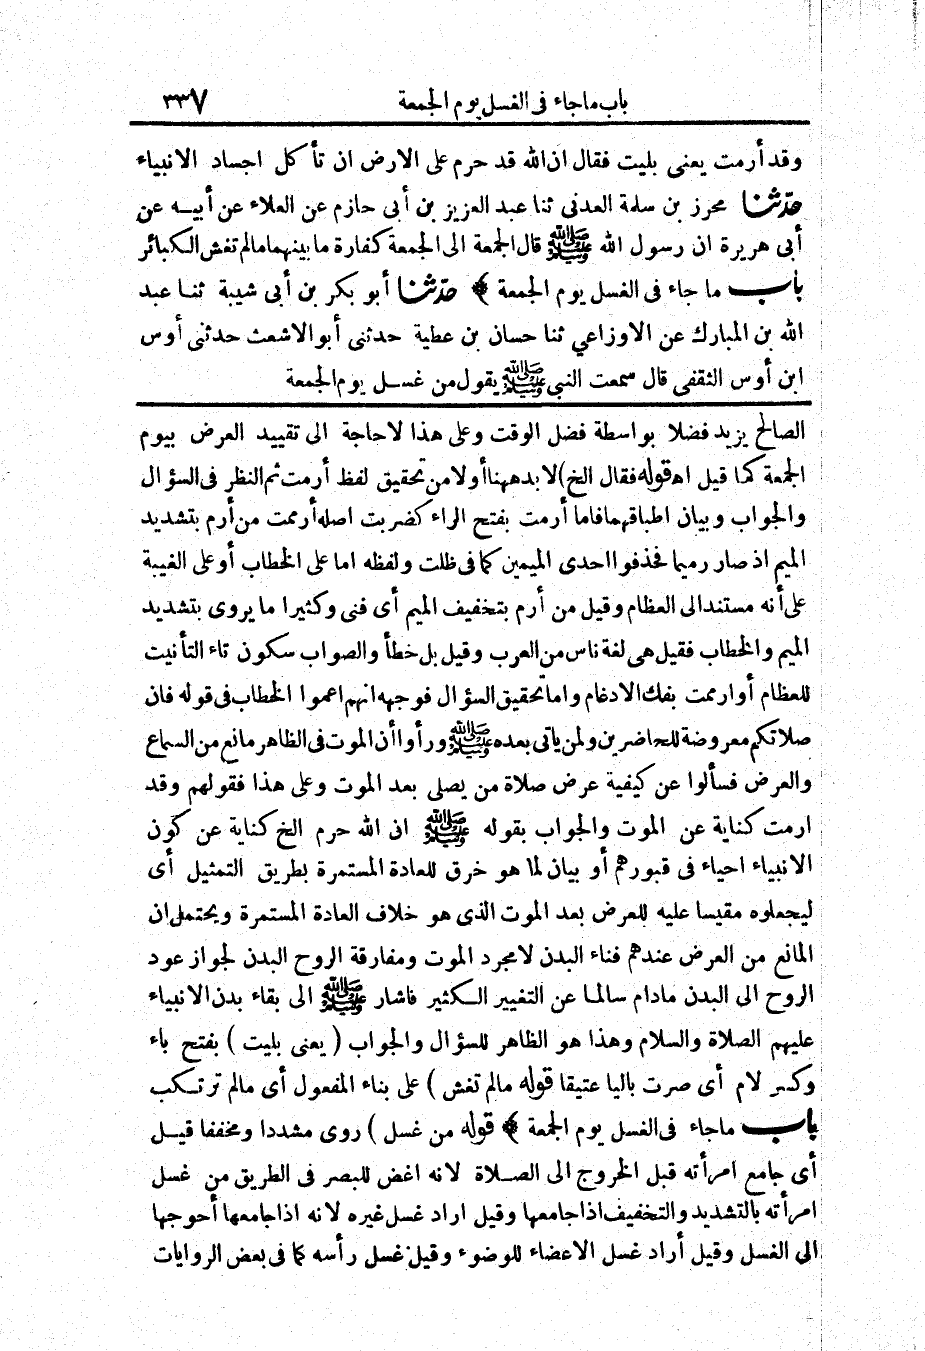 باب ماجاء فى الغسل يوم الجمعة ٣٣٧
وقد أرمت يعنى بليت فقال ان الله قد حرم على الارض ان تأكل اجساد الانبياء
حدّثنا محرز بن سلمة العدنى ثنا عبد العزيز بن أبى حازم عن العلاء عن أبيـه عن
أبى هريرة ان رسول الله ﷺ قال الجمعة الى الجمعة كفارة ما بينهما مالم تغش الكبائر
باب ما جاء فى الغسل يوم الجمعة ﴾ حدّثنا أبو بكر بن أبى شيبة ثنـا عبد
الله بن المبارك عن الاوزاعي ثنا حسان بن عطية حدثنى أبو الاشعث حدثنى أوس
ابن أوس الثقفى قال سمعت النبى ﷺ يقول من غسـل يوم الجمعة
الصالح يزيد فضلا بواسطة فضل الوقت وعلى هذا لاحاجة الى تقييد العرض بيوم
الجمعة كما قيل اه قوله فقال الخ) لابد ههنا أولا من تحقيق لفظ أرمت ثم النظر فى السؤال
والجواب وبيان اطباقهما فاما أرمت بفتح الراء كضربت اصله أرممت من أرم بتشديد
الميم اذ صار رميما فحذفوا احدى الميمين كما فى ظلت ولفظه اما على الخطاب أو على الغيبة
على أنه مستند الى العظام وقيل من أرم بتخفيف الميم أى فنى وكثيرا ما يروى بتشديد
الميم والخطاب فقيل هى لغة ناس من العرب وقيل بل خطأ والصواب سكون تاء التأنيث
للعظام أو ارممت بفك الادغام واما تحقيق السؤال فوجهه انهم اعموا الخطاب فى قوله فان
صلاتكم معروضة للحاضرين ولمن يأتى بعده ﷺ ورأوا أن الموت فى الظاهر مانع من السماع
والعرض فسألوا عن كيفية عرض صلاة من يصلى بعد الموت وعلى هذا فقولهم وقد
ارمت كناية عن الموت والجواب بقوله ﷺ ان الله حرم الخ كناية عن كون
الانبياء احياء فى قبورهم أو بيان لما هو خرق للعادة المستمرة بطريق التمثيل أى
ليجعلوه مقيسا عليه للعرض بعد الموت الذى هو خلاف العادة المستمرة ويحتمل ان
المانع من العرض عندهم فناء البدن لا مجرد الموت ومفارقة الروح البدن لجواز عود
الروح الى البدن مادام سالما عن التغيير الـكثير فاشار ﷺ الى بقاء بدن الانبياء
عليهم الصلاة والسلام وهذا هو الظاهر للسؤال والجواب ( يعنى بليت ) بفتح باء
وكسر لام أى صرت باليا عتيقا قوله مالم تغش ) على بناء المفعول أى مالم ترتـكب
باب ماجاء فى الغسل يوم الجمعة ﴾ قوله من غسل ) روى مشددا ومخففا قيـل
أى جامع امرأته قبل الخروج الى الصـلاة لانه اغض للبصر فى الطريق من غسل
امرأته بالتشديد والتخفيف اذا جامعها وقيل اراد غسل غيره لانه اذا جامعها أحوجها
الى الغسل وقيل أراد غسل الاعضاء للوضوء وقيل غسل رأسه كما فى بعض الروايات